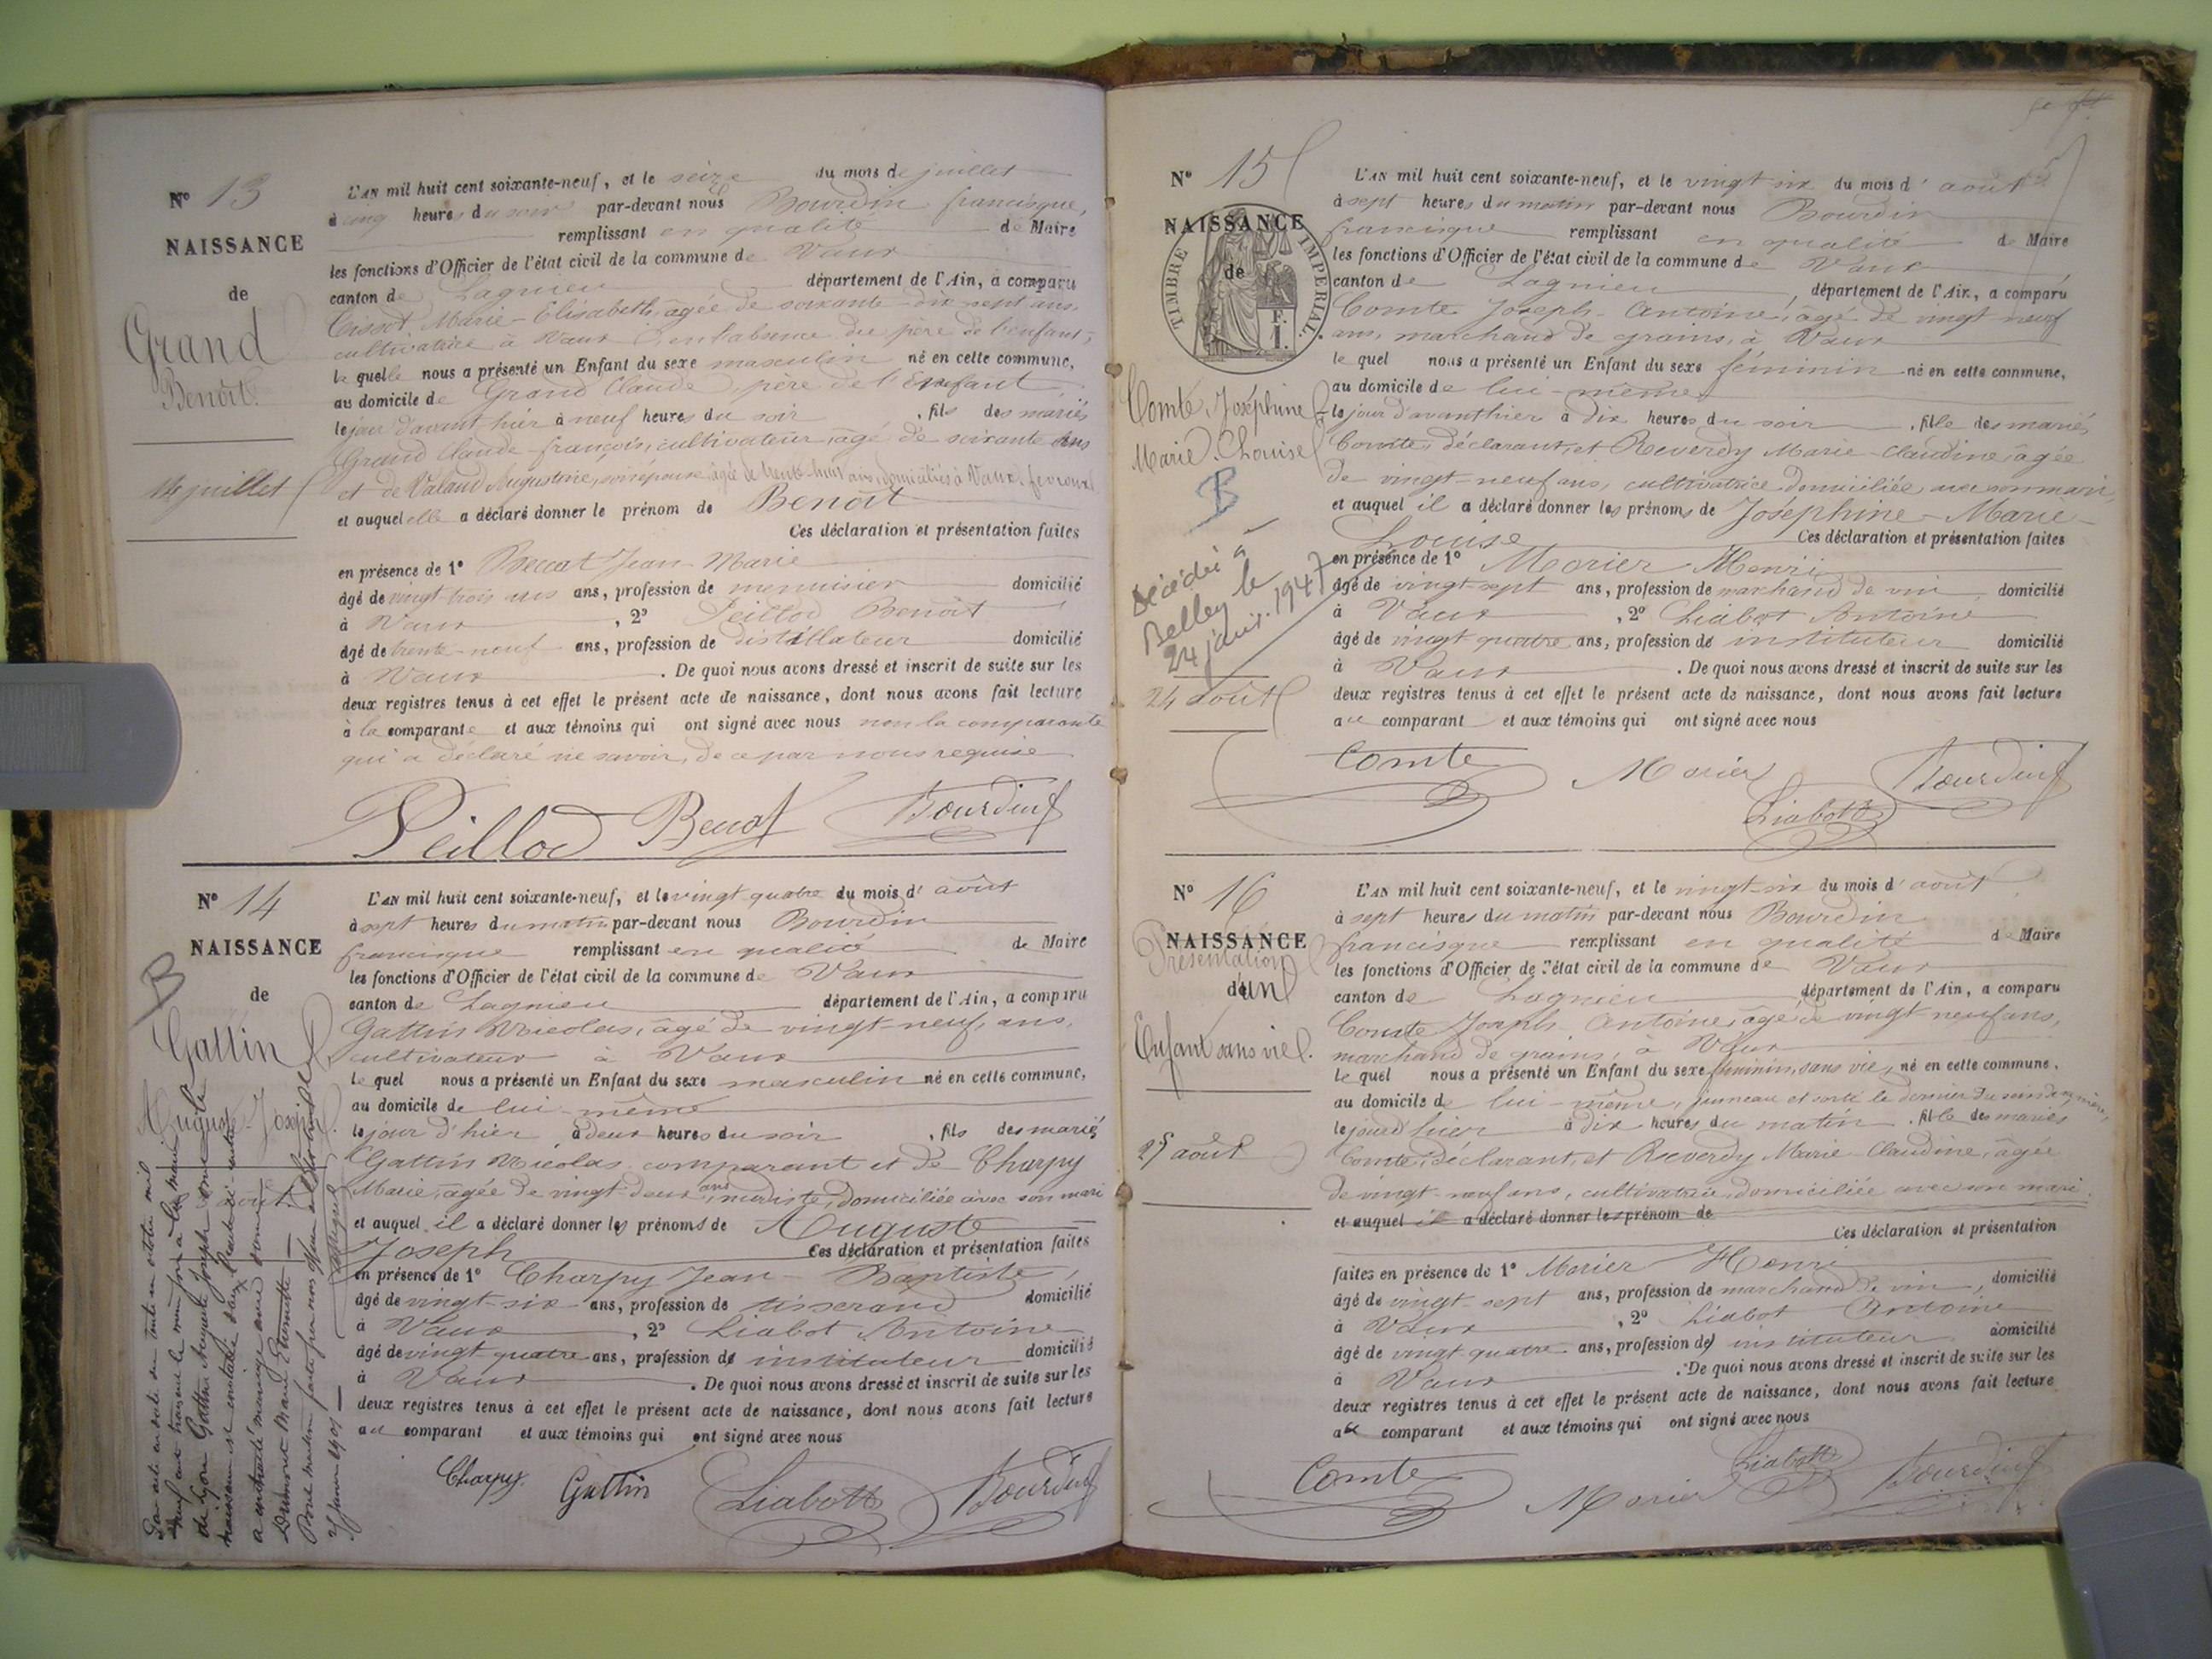 N° 13
NAISSANCE
de
Grand
Benoît
14 juillet
L'AN mil huit cent soixante-neuf, et le seize du mois de juillet
à cinq heures du soir par-devant nous Bourdin francisque,
remplissant en qualité de Maire
les fonctions d'Officier de l'état civil de la commune de Vaux
canton de Lagnieu département de l'Ain, a comparu
Marie-Elisabeth, âgée de soixante-dix sept ans,
cultivatrice à Vaux, en l'absence du père de l'enfant,
laquelle nous a présenté un Enfant du sexe masculin né en cette commune,
au domicile de Grand Claude, père de l'Enfant
le jour d'avant hier à neuf heures du soir, fils des mariés
Grand Claude-françois, cultivateur, âgé de soixante ans
et de Valand Augustine, son épouse, âgée de trente-huit ans, domiciliés à Vaux
et auquel elle a déclaré donner le prénom de Benoît
Ces déclaration et présentation faites
en présence de 1° Jean-Marie
âgé de vingt-trois ans ans, profession de menuisier domicilié
à Vaux, 2° Peillod Benoît
âgé de trente-neuf ans, profession de distillateur domicilié
à Vaux. De quoi nous avons dressé et inscrit de suite sur les
deux registres tenus à cet effet le présent acte de naissance, dont nous avons fait lecture
à la comparante et aux témoins qui ont signé avec nous non la comparante
qui a déclaré ne savoir, de ce par nous requise
Peillod Bourdin
N° 14
B
NAISSANCE
de
Gattin
Auguste Joseph
août
L'AN mil huit cent soixante-neuf, et le vingt-quatre du mois d'août
à sept heures du matin par-devant nous Bourdin
francisque remplissant en qualité de Maire
les fonctions d'Officier de l'état civil de la commune de Vaux
canton de Lagnieu département de l'Ain, a comparu
Gattin Nicolas, âgé de vingt-neuf ans,
cultivateur à Vaux
lequel nous a présenté un Enfant du sexe masculin né en cette commune,
au domicile de lui-même
le jour d'hier, à deux heures du soir, fils des mariés
Gattin Nicolas comparant et de Charpy
Marie, âgée de vingt-deux ans, modiste, domiciliée avec son mari
et auquel il a déclaré donner les prénoms de Auguste
Joseph Ces déclaration et présentation faites
en présence de 1° Charpy Jean-Baptiste,
âgé de vingt-six ans, profession de tisserand domicilié
à Vaux, 2° Liabot Antoine
âgé de vingt-quatre ans, profession de instituteur domicilié
à Vaux. De quoi nous avons dressé et inscrit de suite sur les
deux registres tenus à cet effet le présent acte de naissance, dont nous avons fait lecture
au comparant et aux témoins qui ont signé avec nous
Charpy Gattin Liabot Bourdin
de Lyon Gattin Auguste Joseph
a contracté mariage avec
N° 15
NAISSANCE
de
TIMBRE IMPERIAL
F.
1.
Comte Joséphine
Marie-Louise
B
Décédée à
Belley le
24 janv. 1947
24 août
L'AN mil huit cent soixante-neuf, et le vingt six du mois d'août
à sept heures du matin par-devant nous Bourdin
francisque remplissant en qualité de Maire
les fonctions d'Officier de l'état civil de la commune de Vaux
canton de Lagnieu, département de l'Ain, a comparu
Comte Joseph-Antoine, âgé de vingt neuf
ans, marchand de grains, à Vaux
lequel nous a présenté un Enfant du sexe féminin né en cette commune,
au domicile de lui-même
le jour d'avant hier à dix heures du soir, fille des mariés
Comte, déclarant, et Reverdy Marie-Claudine, âgée
de vingt-neuf ans, cultivatrice domiciliée avec son mari,
et auquel il a déclaré donner les prénoms de Joséphine-Marie-
Louise Ces déclaration et présentation faites
en présence de 1° Morier Henri
âgé de vingt-sept ans, profession de marchand de vin, domicilié
à Vaux, 2° Liabot Antoine
âgé de vingt quatre ans, profession de instituteur domicilié
à Vaux. De quoi nous avons dressé et inscrit de suite sur les
deux registres tenus à cet effet le présent acte de naissance, dont nous avons fait lecture
au comparant et aux témoins qui ont signé avec nous
Comte Morier Liabot Bourdin
N° 16
NAISSANCE
Présentation
d'un
Enfant sans vie.
25 août
L'AN mil huit cent soixante-neuf, et le vingt-six du mois d'août
à sept heures du matin par-devant nous Bourdin
francisque remplissant en qualité de Maire
les fonctions d'Officier de l'état civil de la commune de Vaux
canton de Lagnieu département de l'Ain, a comparu
Comte Joseph-Antoine, âgé de vingt neuf ans,
marchand de grains, à Vaux
lequel nous a présenté un Enfant du sexe féminin, sans vie, né en cette commune,
au domicile de lui-même, jumeau et sorti le dernier du sein de sa mère,
le jour d'hier à dix heures du matin, fille des mariés
Comte, déclarant, et Reverdy Marie-Claudine, âgée
de vingt-neuf ans, cultivatrice, domiciliée avec son mari.
et auquel il a déclaré donner les prénom de
Ces déclaration et présentation
faites en présence de 1° Morier Henri
âgé de vingt-sept ans, profession de marchand de vin, domicilié
à Vaux, 2° Liabot Antoine
âgé de vingt quatre ans, profession de instituteur domicilié
à Vaux. De quoi nous avons dressé et inscrit de suite sur les
deux registres tenus à cet effet le présent acte de naissance, dont nous avons fait lecture
au comparant et aux témoins qui ont signé avec nous
Comte Morier Liabot Bourdin